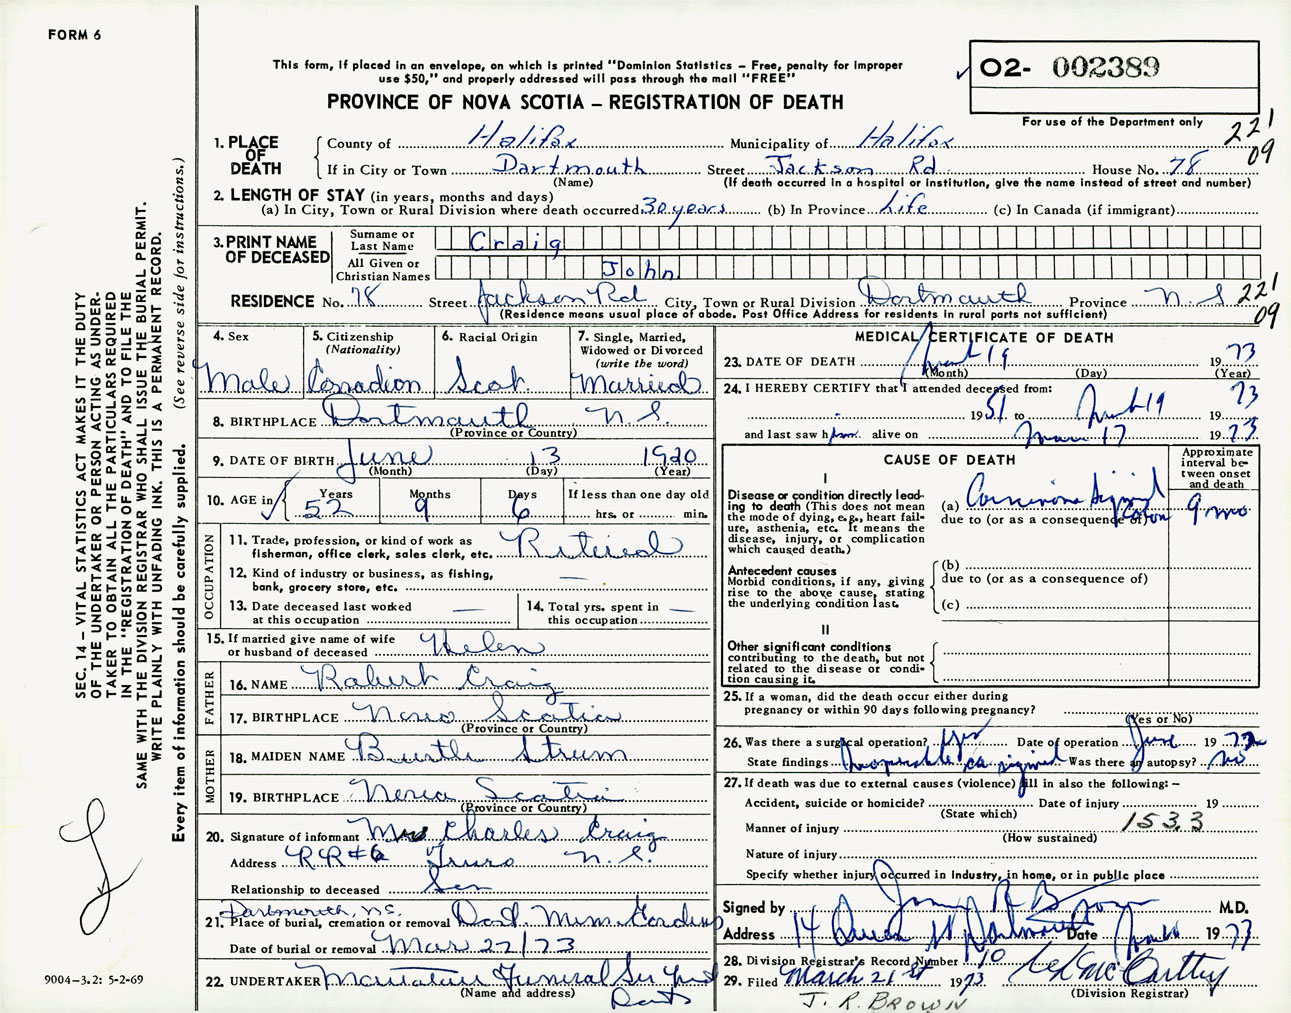 FORM 6
This form, if placed in an envelope, on which is printed "Dominion Statistics – Free, penalty for improper
use $50," and properly addressed will pass through the mail "FREE"
PROVINCE OF NOVA SCOTIA – REGISTRATION OF DEATH
O2- 002389
For use of the Department only
221
09
1. PLACE OF DEATH
County of Halifax Municipality of Halifax
If in City or Town Dartmouth Street Jackson Rd House No. 78
(Name) (If death occurred in a hospital or institution, give the name instead of street and number)
2. LENGTH OF STAY (in years, months and days)
(a) In City, Town or Rural Division where death occurred 30 years (b) In Province Life (c) In Canada (if immigrant)
3. PRINT NAME OF DECEASED
Surname or Last Name Craig
All Given or Christian Names John
RESIDENCE No. 78 Street Jackson Rd City, Town or Rural Division Dartmouth Province N.S.
221
09
(Residence means usual place of abode. Post Office Address for residents in rural parts not sufficient)
4. Sex
Male
5. Citizenship
(Nationality)
Canadian
6. Racial Origin
Scot.
7. Single, Married,
Widowed or Divorced
(write the word)
Married
8. BIRTHPLACE Dartmouth N.S.
(Province or Country)
9. DATE OF BIRTH June 13 1920
(Month) (Day) (Year)
10. AGE in Years Months Days If less than one day old
52 9 6 hrs. or min.
OCCUPATION
11. Trade, profession, or kind of work as
fisherman, office clerk, sales clerk, etc. Retired
12. Kind of industry or business, as fishing,
bank, grocery store, etc. —
13. Date deceased last worked
at this occupation —
14. Total yrs. spent in
this occupation —
15. If married give name of wife
or husband of deceased Helen
FATHER
16. NAME Robert Craig
17. BIRTHPLACE Nova Scotia
(Province or Country)
MOTHER
18. MAIDEN NAME Strum
19. BIRTHPLACE Nova Scotia
(Province or Country)
20. Signature of informant Mrs Charles Craig
Address RR#6 Truro N.S.
Relationship to deceased
21. Place of burial, cremation or removal Dartmouth, N.S. Dart. Mem. Gardens
Date of burial or removal Mar 22/73
22. UNDERTAKER Funeral
(Name and address)
MEDICAL CERTIFICATE OF DEATH
23. DATE OF DEATH March 19 1973
(Month) (Day) (Year)
24. I HEREBY CERTIFY that I attended deceased from:
1951 to March 19 1973
and last saw him alive on Mar 17 1973
CAUSE OF DEATH
Approximate
interval be-
tween onset
and death
I
Disease or condition directly lead-
ing to death (This does not mean
the mode of dying, e.g., heart fail-
ure, asthenia, etc. It means the
disease, injury, or complication
which caused death.)
(a) Carcinoma Sigmoid Colon 9 mo
due to (or as a consequence of)
Antecedent causes
Morbid conditions, if any, giving
rise to the above cause, stating
the underlying condition last.
(b)
due to (or as a consequence of)
(c)
II
Other significant conditions
contributing to the death, but not
related to the disease or condi-
tion causing it.
25. If a woman, did the death occur either during
pregnancy or within 90 days following pregnancy?
(Yes or No)
26. Was there a surgical operation? Yes Date of operation June 1972
State findings Inoperable ca sigmoid Was there an autopsy? no
27. If death was due to external causes (violence) fill in also the following: –
Accident, suicide or homicide? Date of injury 19
(State which)
Manner of injury 153.3
(How sustained)
Nature of injury
Specify whether injury occurred in Industry, in home, or in public place
Signed by James R Brown M.D.
Address 14 Queen St Dartmouth Date 1973
28. Division Registrar's Record Number 10
29. Filed March 21st 1973
(Division Registrar)
J. R. BROWN
SEC. 14 – VITAL STATISTICS ACT MAKES IT THE DUTY
OF THE UNDERTAKER OR PERSON ACTING AS UNDER-
TAKER TO OBTAIN ALL THE PARTICULARS REQUIRED
IN THE "REGISTRATION OF DEATH" AND TO FILE THE
SAME WITH THE DIVISION REGISTRAR WHO SHALL ISSUE THE BURIAL PERMIT.
WRITE PLAINLY WITH UNFADING INK. THIS IS A PERMANENT RECORD.
Every item of information should be carefully supplied. (See reverse side for instructions.)
9004–3.2: 5-2-69